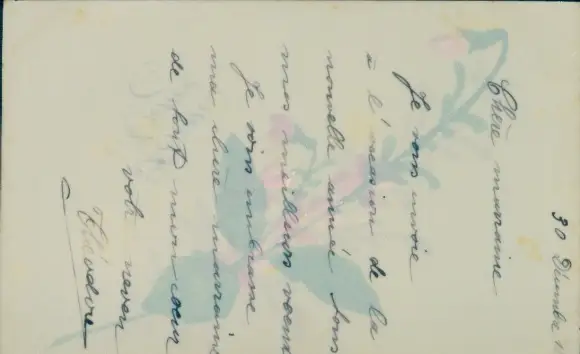 30 Décembre 1
Chère marraine
Je vous envoie
à l'occasion de la
nouvelle année tous
mes meilleurs voeux
Je vous embrasse
ma chère marraine
de tout mon coeur
votre neveu
Théodore